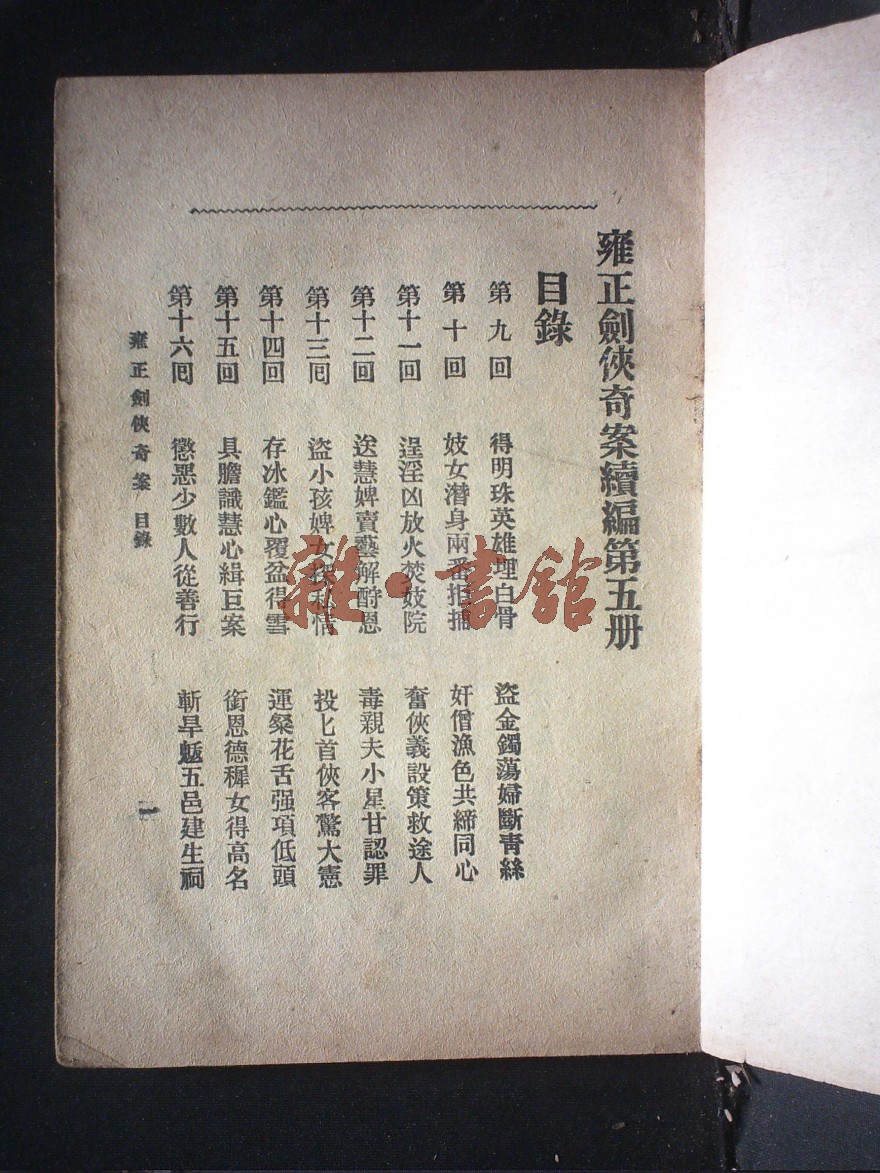 雍正劍俠奇案續編第五册
目錄
第九回 得明珠英雄埋白骨 盜金鐲蕩婦斷青絲
第十回 妓女潛身兩番拒捕 奸僧漁色共締同心
第十一回 逞淫凶放火焚妓院 奮俠義設策救途人
第十二回 送慧婢賣藝解酧恩 毒親夫小星甘認罪
第十三回 盜小孩婢女探私情 投匕首俠客驚大憲
第十四回 存冰鑑心覆盆得雪 運粲花舌强項低頭
第十五回 具膽識慧心緝巨案 銜恩德穉女得高名
第十六回 懲惡少數人從善行 斬旱魃五邑建生祠
雍正劍俠奇案 目錄
一
雜·書館